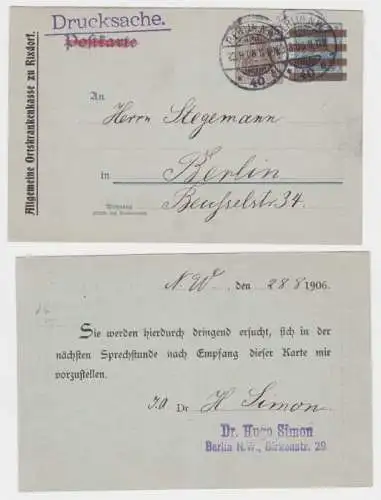 Drucksache.
Postkarte
Allgemeine Ortskrankenkasse zu Rixdorf.
An
Herrn Stegemann
in Berlin
Beusselstr. 34.
Wohnung
N.W., den 28 8 1906.
Sie werden hierdurch dringend ersucht, sich in der
nächsten Sprechstunde nach Empfang dieser Karte mir
vorzustellen.
I.A. Dr H Simon
Dr. Hugo Simon
Berlin N.W., Birkenstr. 29